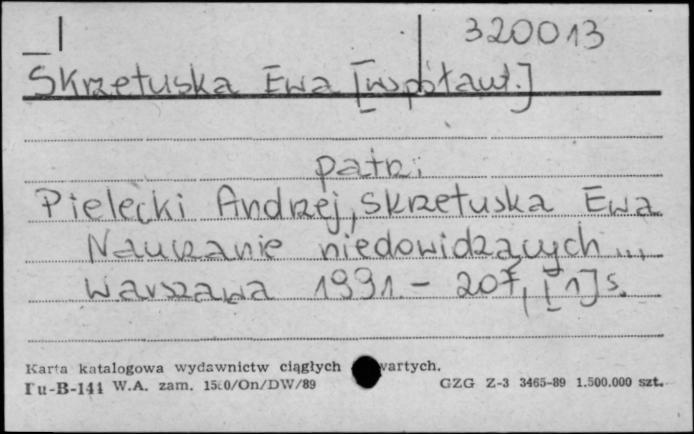 320013
Skrzetuska Ewa [współaut.]
patrz:
Pielecki Andrzej, Skrzetuska Ewa
Nauczanie niedowidzących...
Warszawa 1991. - 207, [1] s.
Karta katalogowa wydawnictw ciągłych wartych.
Pu-B-141 W.A. zam. 1580/On/DW/89 GZG Z-3 3465-89 1.500.000 szt.